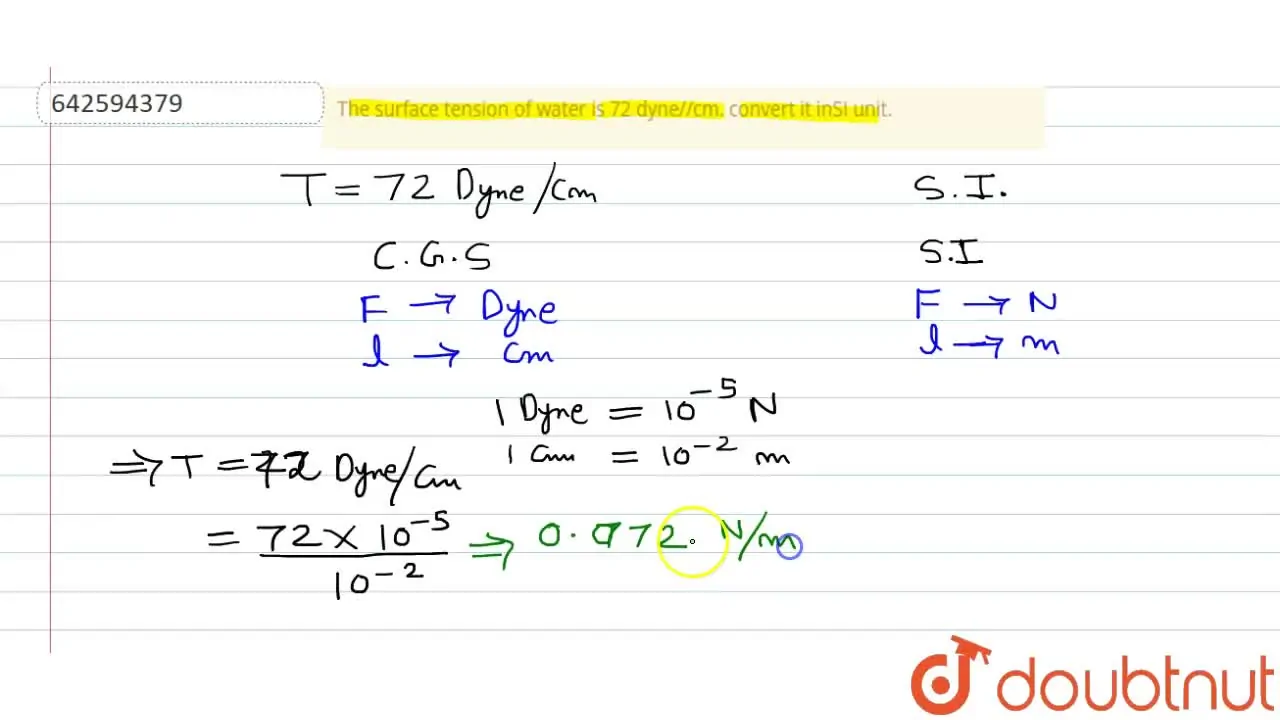 642594379
The surface tension of water is 72 dyne//cm. convert it inSI unit.
T = 72 Dyne/cm S.I.
C.G.S S.I
F → Dyne F → N
l → cm l → m
1 Dyne = 10⁻⁵ N
1 cm = 10⁻² m
⇒ T = 72 Dyne/cm
= 72 × 10⁻⁵ / 10⁻² ⇒ 0.072 N/m
doubtnut